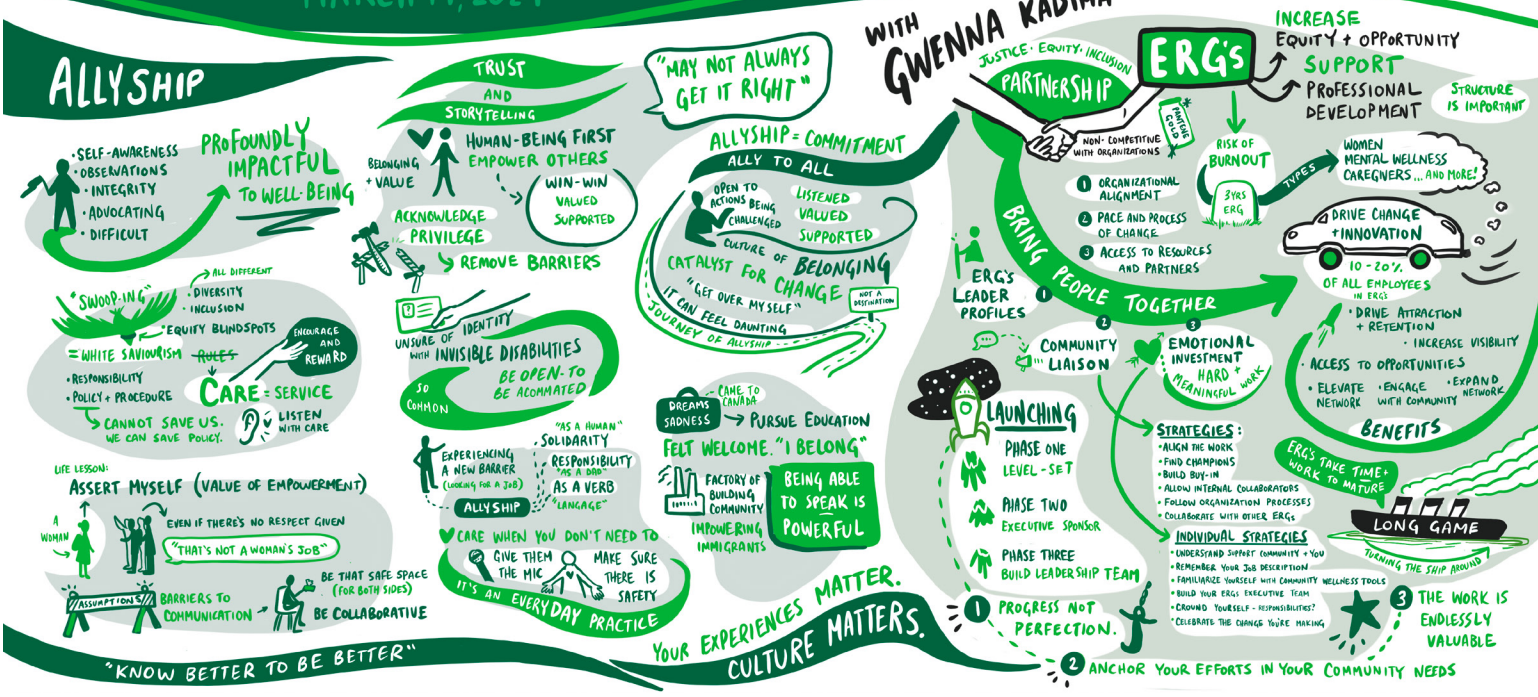 MARCH 14, 2024
ALLYSHIP
• SELF-AWARENESS
• OBSERVATIONS
• INTEGRITY
• ADVOCATING
• DIFFICULT
PROFOUNDLY
IMPACTFUL
TO WELL-BEING
"SWOOP-ING"
ALL DIFFERENT
• DIVERSITY
• INCLUSION
• EQUITY BLINDSPOTS
= WHITE SAVIOURISM
• RESPONSIBILITY
• POLICY + PROCEDURE
CANNOT SAVE US.
WE CAN SAVE POLICY.
RULES
ENCOURAGE
AND
REWARD
CARE = SERVICE
LISTEN
WITH CARE
LIFE LESSON:
ASSERT MYSELF (VALUE OF EMPOWERMENT)
A
WOMAN
EVEN IF THERE'S NO RESPECT GIVEN
"THAT'S NOT A WOMAN'S JOB"
ASSUMPTIONS
BARRIERS TO
COMMUNICATION
BE THAT SAFE SPACE
(FOR BOTH SIDES)
BE COLLABORATIVE
"KNOW BETTER TO BE BETTER"
TRUST
AND
STORYTELLING
BELONGING
+ VALUE
HUMAN-BEING FIRST
EMPOWER OTHERS
WIN-WIN
VALUED
SUPPORTED
ACKNOWLEDGE
PRIVILEGE
REMOVE BARRIERS
UNSURE OF IDENTITY
WITH INVISIBLE DISABILITIES
BE OPEN-TO
BE ACOMMATED
SO
COMMON
EXPERIENCING
A NEW BARRIER
(LOOKING FOR A JOB)
ALLYSHIP
"AS A HUMAN"
SOLIDARITY
RESPONSIBILITY
"AS A DAD"
AS A VERB
"LANGAGE"
CARE WHEN YOU DON'T NEED TO
GIVE THEM
THE MIC
MAKE SURE
THERE IS
SAFETY
IT'S AN EVERYDAY PRACTICE
"MAY NOT ALWAYS
GET IT RIGHT"
ALLYSHIP = COMMITMENT
ALLY TO ALL
OPEN TO
ACTIONS BEING
CHALLENGED
LISTENED
VALUED
SUPPORTED
CULTURE OF BELONGING
CATALYST FOR CHANGE
"GET OVER MYSELF"
IT CAN FEEL DAUNTING
JOURNEY OF ALLYSHIP
NOT A
DESTINATION
DREAMS
SADNESS
CAME TO
CANADA
PURSUE EDUCATION
FELT WELCOME. "I BELONG"
FACTORY OF
BUILDING
COMMUNITY
IMPOWERING
IMMIGRANTS
BEING ABLE
TO SPEAK IS
POWERFUL
YOUR EXPERIENCES MATTER.
CULTURE MATTERS.
WITH
GWENNA KADIMA
JUSTICE • EQUITY • INCLUSION
PARTNERSHIP
ERG's
NON-COMPETITIVE
WITH ORGANIZATIONS
PANTENE
GOLD
INCREASE
EQUITY + OPPORTUNITY
SUPPORT
PROFESSIONAL
DEVELOPMENT
STRUCTURE
IS IMPORTANT
RISK OF
BURNOUT
3YRS
ERG
TYPES
WOMEN
MENTAL WELLNESS
CAREGIVERS ...AND MORE!
1 ORGANIZATIONAL
ALIGNMENT
2 PACE AND PROCESS
OF CHANGE
3 ACCESS TO RESOURCES
AND PARTNERS
DRIVE CHANGE
+INNOVATION
10-20%
OF ALL EMPLOYEES
IN ERG's
BRING PEOPLE TOGETHER
ERG's
LEADER
PROFILES
1
2
COMMUNITY
LIAISON
3
EMOTIONAL
INVESTMENT
HARD +
MEANINGFUL WORK
• DRIVE ATTRACTION
+ RETENTION
• INCREASE VISIBILITY
• ACCESS TO OPPORTUNITIES
• ELEVATE
NETWORK
• ENGAGE
WITH COMMUNITY
• EXPAND
NETWORK
BENEFITS
LAUNCHING
PHASE ONE
LEVEL-SET
PHASE TWO
EXECUTIVE SPONSOR
PHASE THREE
BUILD LEADERSHIP TEAM
STRATEGIES:
• ALIGN THE WORK
• FIND CHAMPIONS
• BUILD BUY-IN
• ALLOW INTERNAL COLLABORATORS
• FOLLOW ORGANIZATION PROCESSES
• COLLABORATE WITH OTHER ERGs
INDIVIDUAL STRATEGIES
• UNDERSTAND SUPPORT COMMUNITY + YOU
• REMEMBER YOUR JOB DESCRIPTION
• FAMILIARIZE YOURSELF WITH COMMUNITY WELLNESS TOOLS
• BUILD YOUR ERGs EXECUTIVE TEAM
• GROUND YOURSELF - RESPONSIBILITIES?
• CELEBRATE THE CHANGE YOU'RE MAKING
ERG's TAKE TIME +
WORK TO MATURE
LONG GAME
TURNING THE SHIP AROUND
1 PROGRESS NOT
PERFECTION.
2 ANCHOR YOUR EFFORTS IN YOUR COMMUNITY NEEDS
3 THE WORK IS
ENDLESSLY
VALUABLE